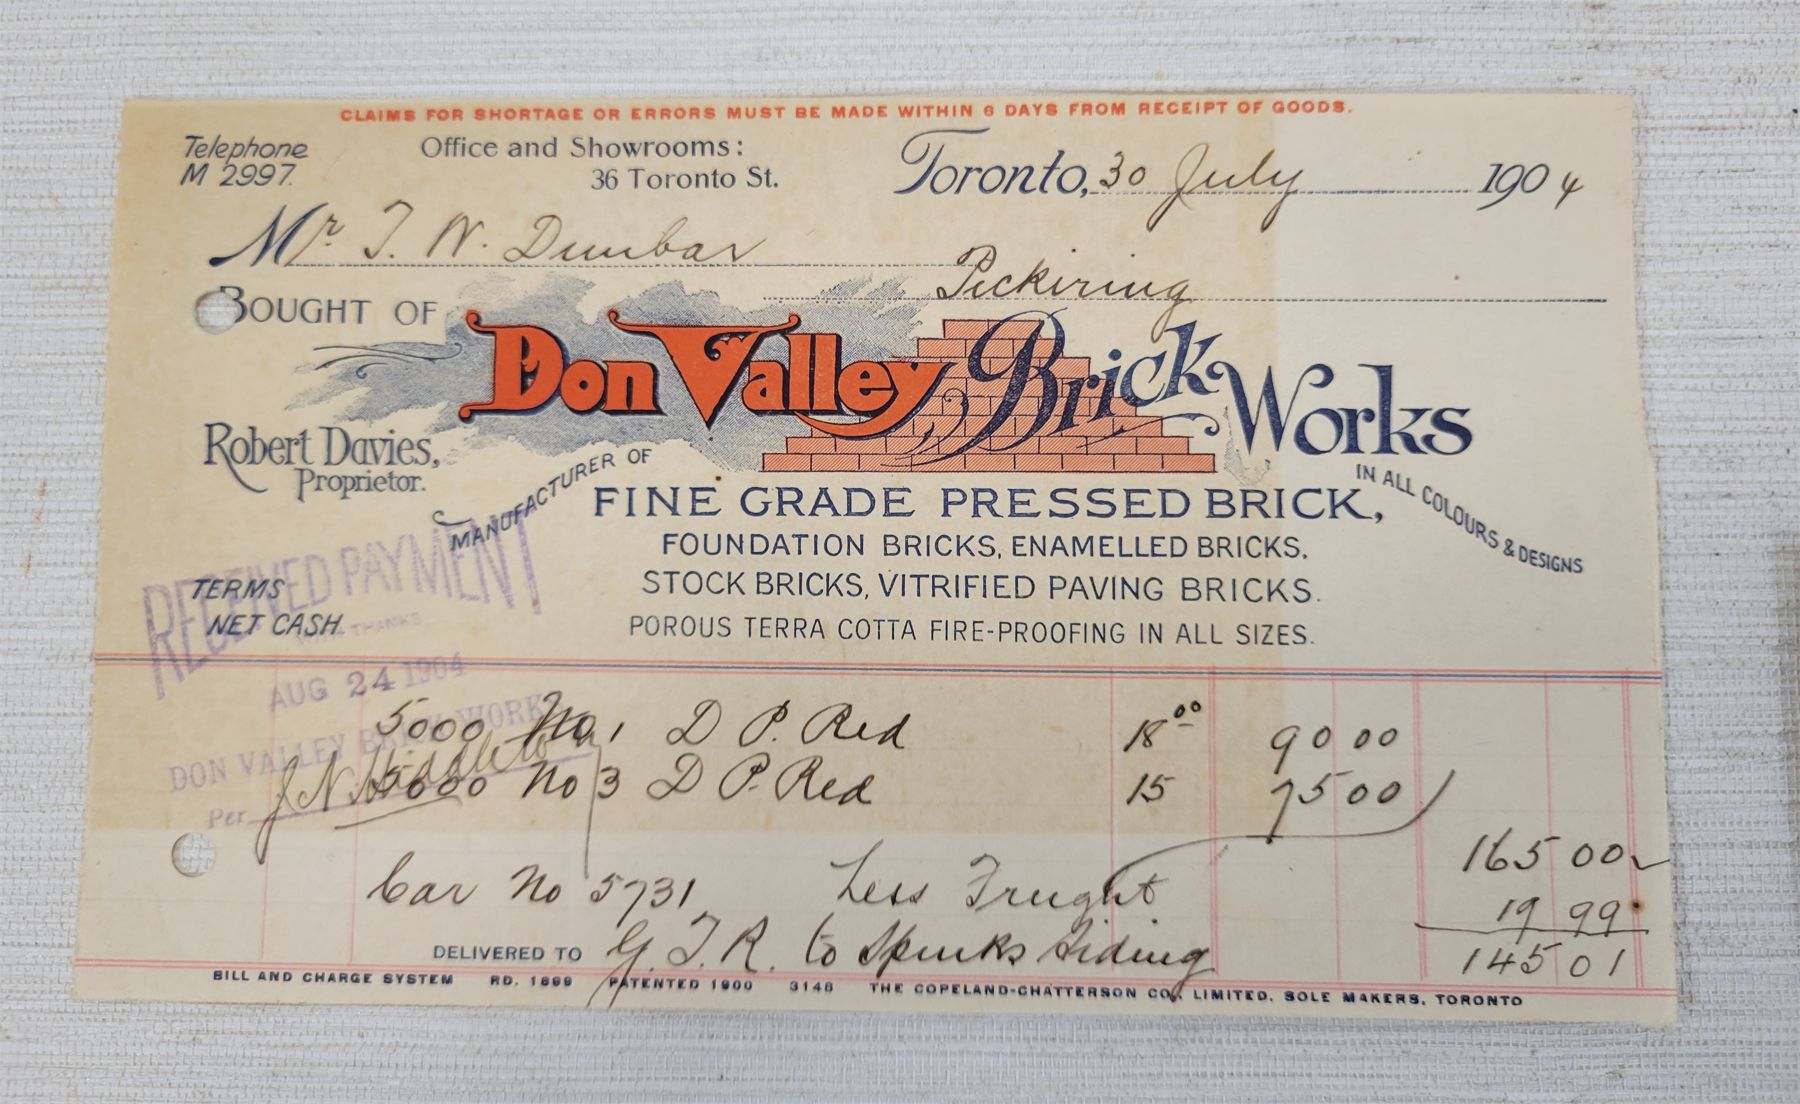 CLAIMS FOR SHORTAGE OR ERRORS MUST BE MADE WITHIN 6 DAYS FROM RECEIPT OF GOODS.
Telephone
M 2997.
Office and Showrooms:
36 Toronto St.
Toronto, 30 July 1904
Mr. T. W. Dunbar
Pickiring
BOUGHT OF
Don Valley Brick Works
Robert Davies,
Proprietor.
MANUFACTURER OF
FINE GRADE PRESSED BRICK,
IN ALL COLOURS & DESIGNS
FOUNDATION BRICKS, ENAMELLED BRICKS.
STOCK BRICKS, VITRIFIED PAVING BRICKS.
POROUS TERRA COTTA FIRE-PROOFING IN ALL SIZES.
TERMS
NET CASH.
RECEIVED PAYMENT
THANKS
AUG 24 1904
DON VALLEY BRICK WORKS
Per J. N.
5000 No 1 D P. Red 18 00 90 00
5000 No 3 D P. Red 15 75 00
165 00
Car No 5731 Less Freight 19 99
DELIVERED TO G. T. R. to Spinks Siding 145 01
BILL AND CHARGE SYSTEM RD. 1899 PATENTED 1900 3148 THE COPELAND-CHATTERSON CO., LIMITED, SOLE MAKERS, TORONTO